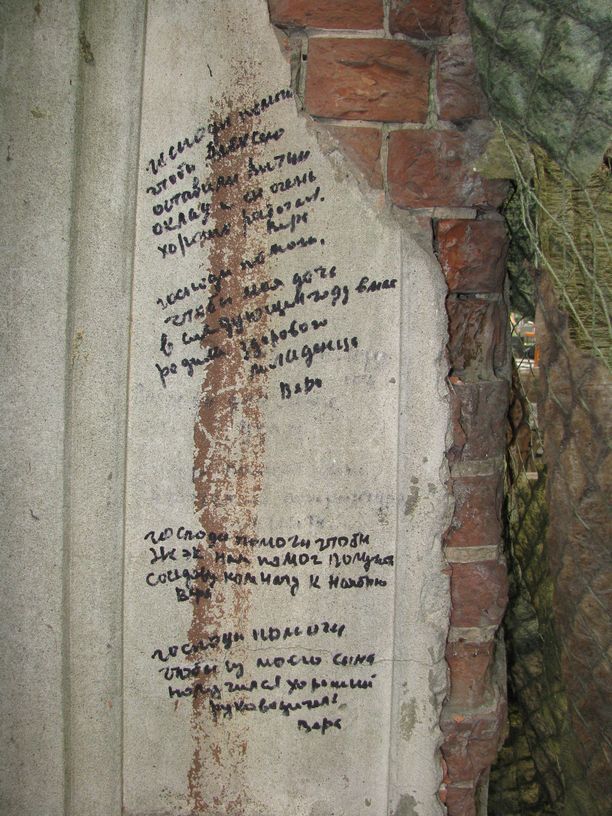 господи помоги
чтобы Алексею
оставили
оклад и он очень
хорошо работал!
Вера
господи помоги,
чтобы моя дочь
в следующем году в мае
родила здорового
младенца
Вера
господи помоги чтобы
ЖЭК нам помог получить
соседову комнату к ноябрю
Вера
господи помоги
чтобы из моего сына
получился хороший
руководитель!
Вера